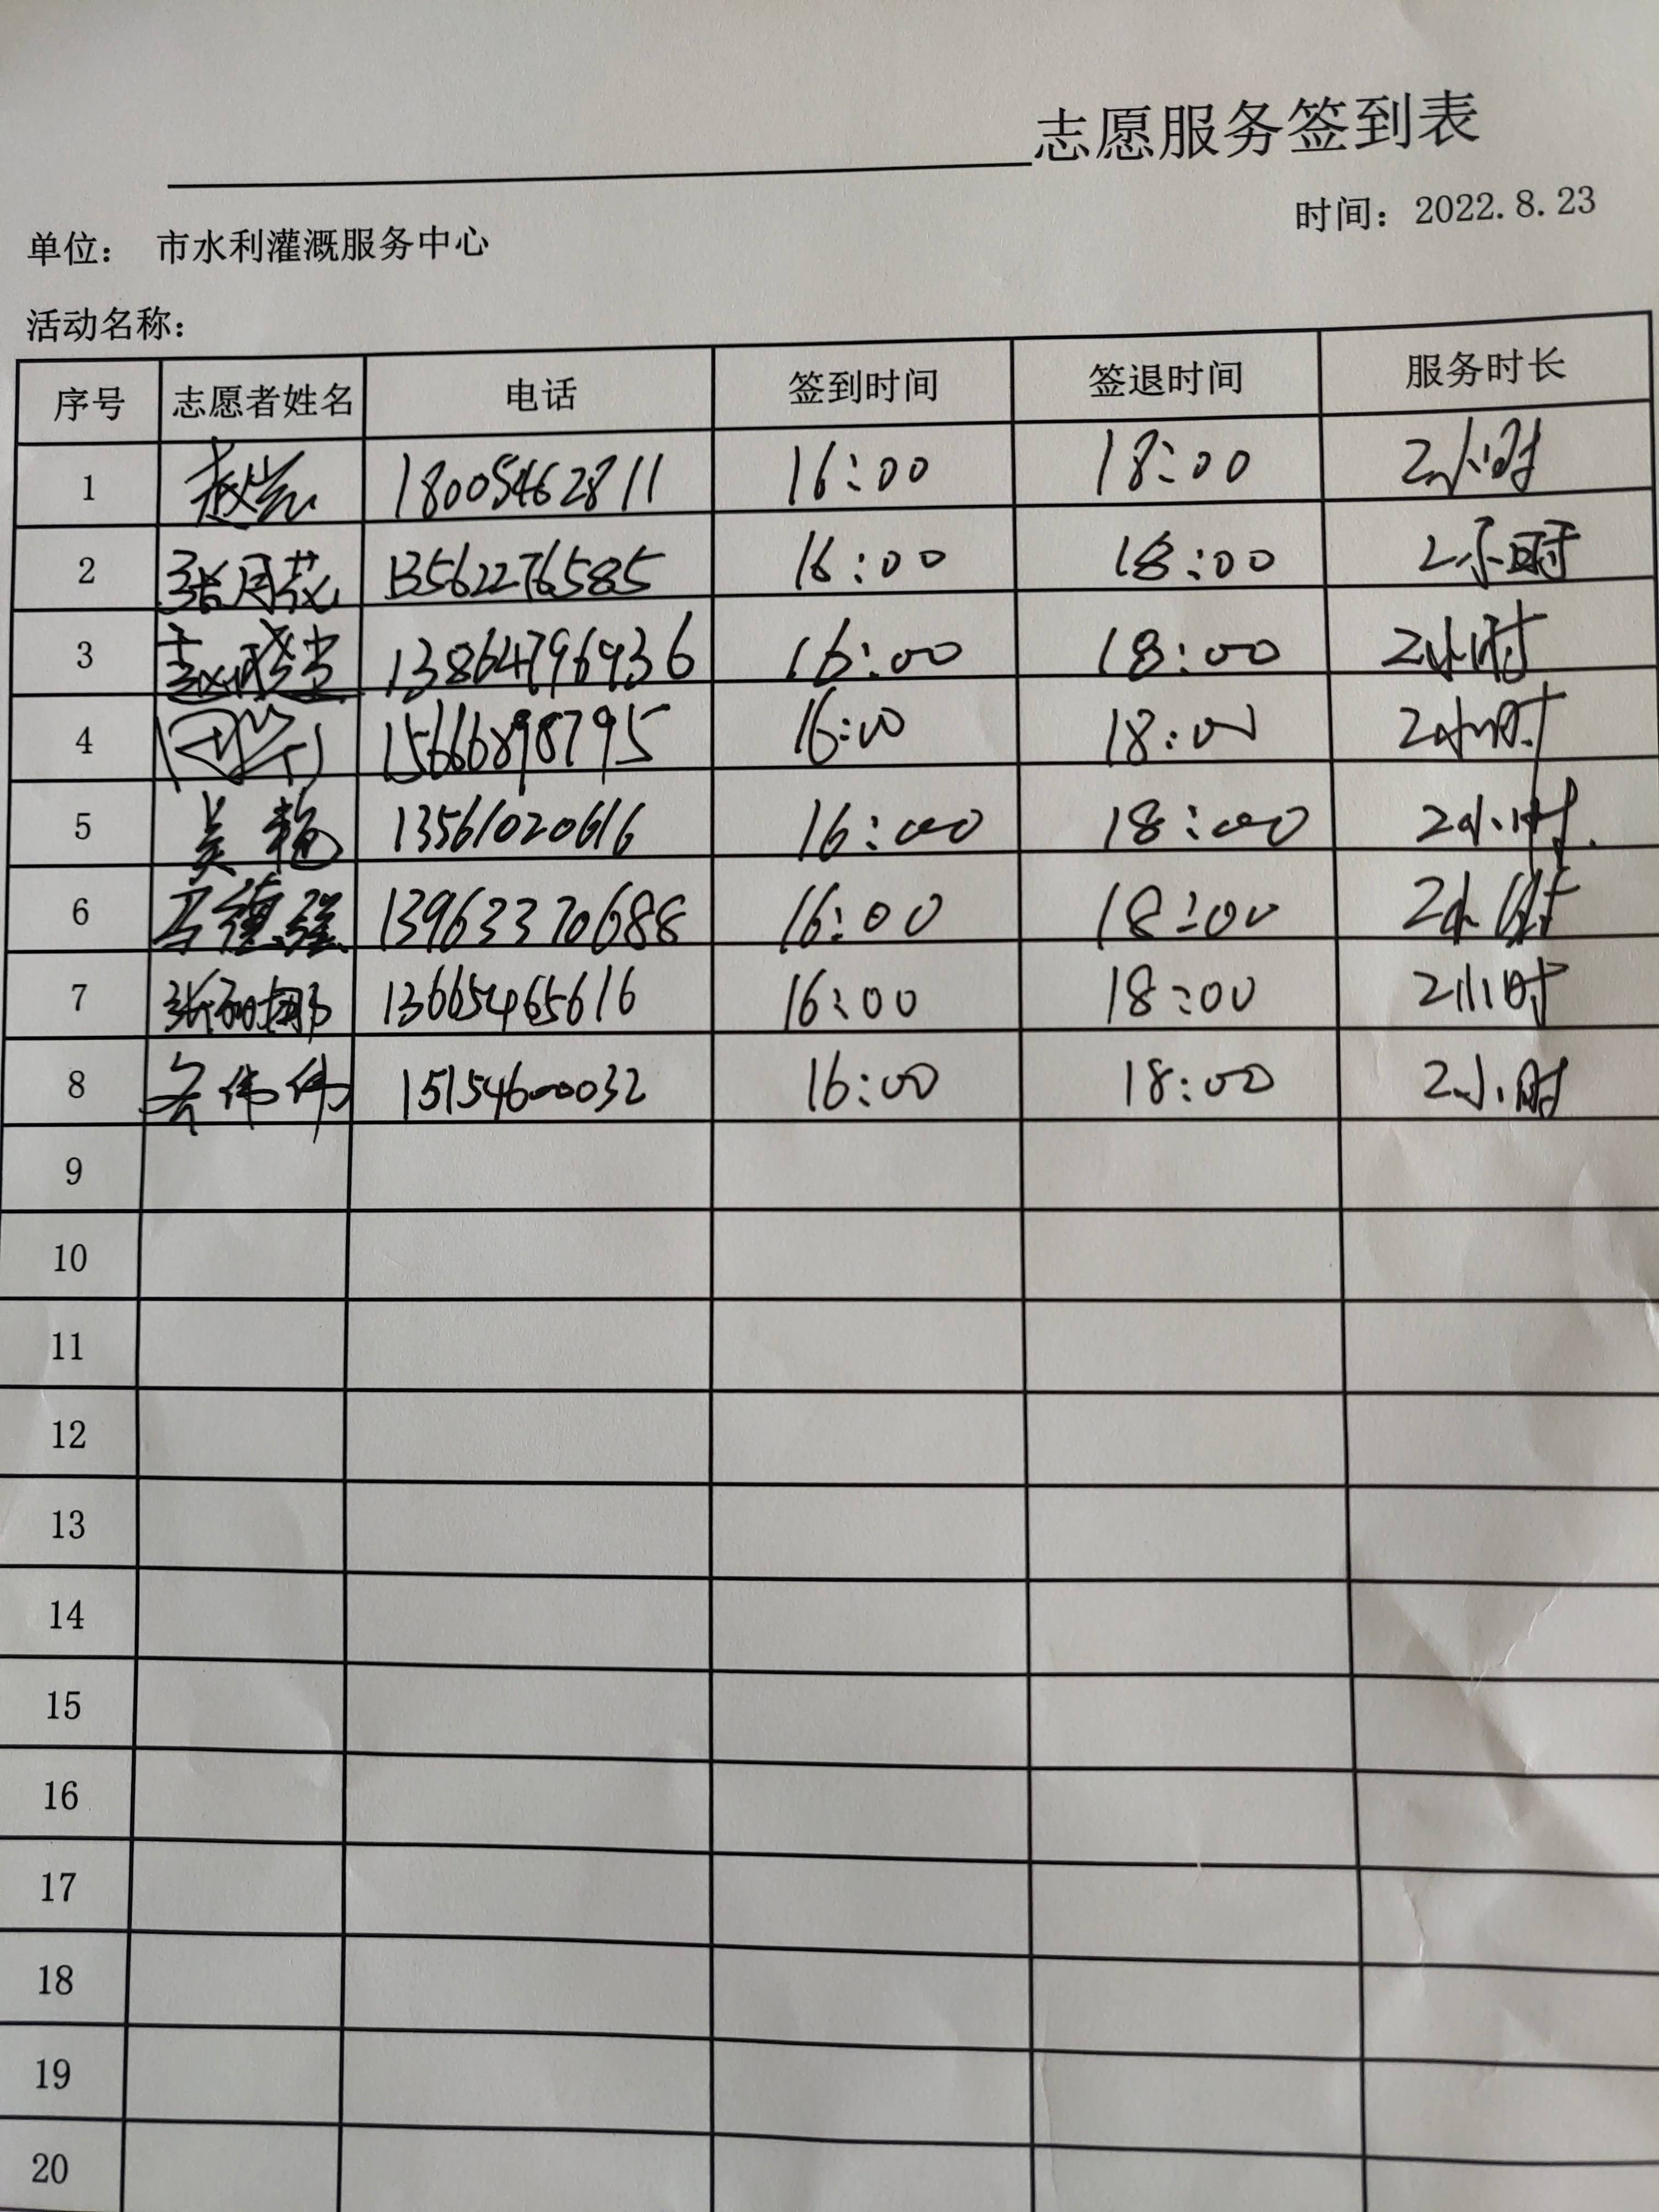 志愿服务签到表
时间：2022.8.23
单位： 市水利灌溉服务中心
活动名称：
序号 志愿者姓名 电话 签到时间 签退时间 服务时长
1 赵岩 18005462811 16:00 18:00 2小时
2 张月花 13562276585 16:00 18:00 2小时
3 13864796936 16:00 18:00 2小时
4 15666898795 16:00 18:00 2小时
5 吴艳 13561020616 16:00 18:00 2小时.
6 马德强 13963370688 16:00 18:00 2小时
7 张娜娜 13665465616 16:00 18:00 2小时
8 伟伟 15154600032 16:00 18:00 2小时
9
10
11
12
13
14
15
16
17
18
19
20